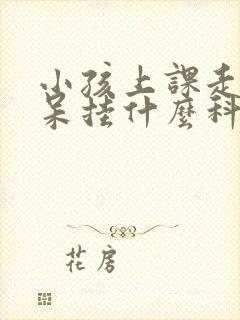 小孩上課走
呆挂什麼科
花房